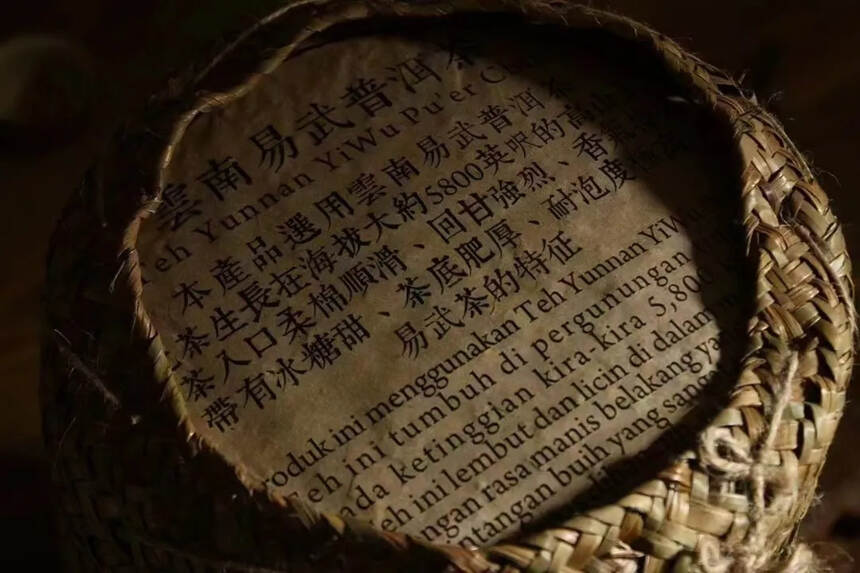 雲南易武普洱茶
Teh Yunnan YiWu Pu'er
本產品選用雲南易武普洱茶
茶生長在海拔大約5800英呎的高
茶入口柔棉順滑、回甘強烈、香
帶有冰糖甜、茶底肥厚、耐泡度
易武茶的特征
roduk ini menggunakan Teh Yunnan YiWu
eh ini tumbuh di pergunungan
ada ketinggian kira-kira 5,800
eh ini lembut dan licin di dalam
ngan rasa manis belakang ya
ntangan buih yang sang